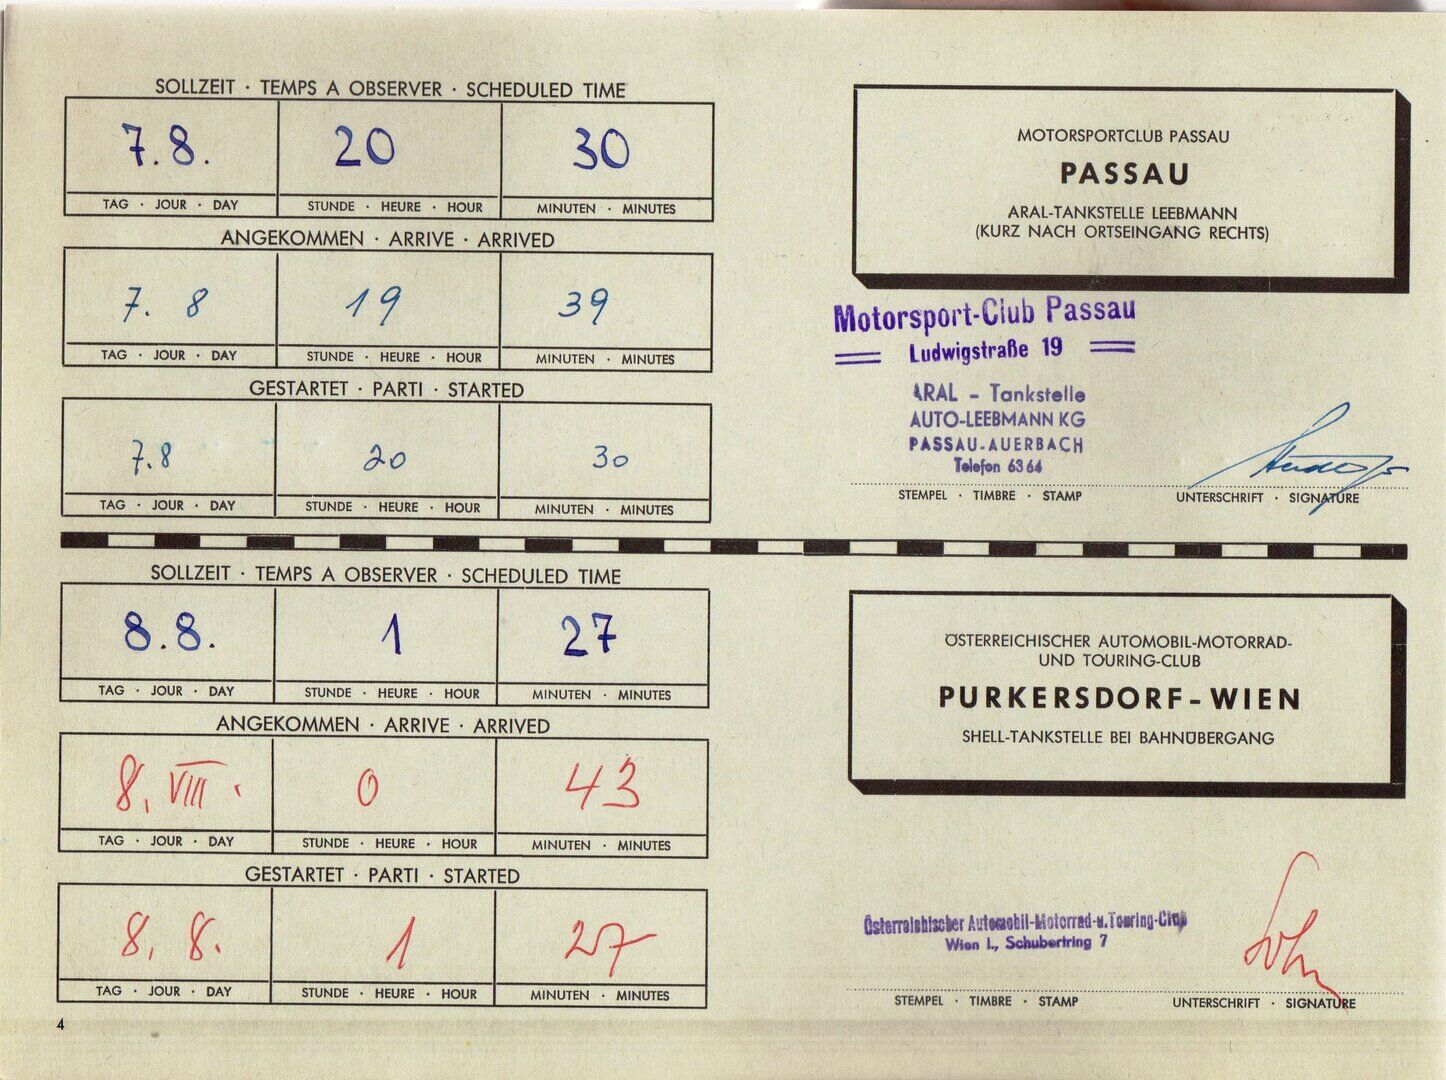 SOLLZEIT · TEMPS A OBSERVER · SCHEDULED TIME
7.8. 20 30
TAG · JOUR · DAY STUNDE · HEURE · HOUR MINUTEN · MINUTES
ANGEKOMMEN · ARRIVE · ARRIVED
7. 8 19 39
TAG · JOUR · DAY STUNDE · HEURE · HOUR MINUTEN · MINUTES
GESTARTET · PARTI · STARTED
7.8 20 30
TAG · JOUR · DAY STUNDE · HEURE · HOUR MINUTEN · MINUTES
MOTORSPORTCLUB PASSAU
PASSAU
ARAL-TANKSTELLE LEEBMANN
(KURZ NACH ORTSEINGANG RECHTS)
Motorsport-Club Passau
Ludwigstraße 19
ARAL - Tankstelle
AUTO-LEEBMANN KG
PASSAU-AUERBACH
Telefon 6364
STEMPEL · TIMBRE · STAMP UNTERSCHRIFT · SIGNATURE
SOLLZEIT · TEMPS A OBSERVER · SCHEDULED TIME
8.8. 1 27
TAG · JOUR · DAY STUNDE · HEURE · HOUR MINUTEN · MINUTES
ANGEKOMMEN · ARRIVE · ARRIVED
8. VIII. 0 43
TAG · JOUR · DAY STUNDE · HEURE · HOUR MINUTEN · MINUTES
GESTARTET · PARTI · STARTED
8. 8. 1 27
TAG · JOUR · DAY STUNDE · HEURE · HOUR MINUTEN · MINUTES
ÖSTERREICHISCHER AUTOMOBIL-MOTORRAD-
UND TOURING-CLUB
PURKERSDORF-WIEN
SHELL-TANKSTELLE BEI BAHNÜBERGANG
Österreichischer Automobil-Motorrad-u.Touring-Club
Wien I., Schubertring 7
STEMPEL · TIMBRE · STAMP UNTERSCHRIFT · SIGNATURE
4